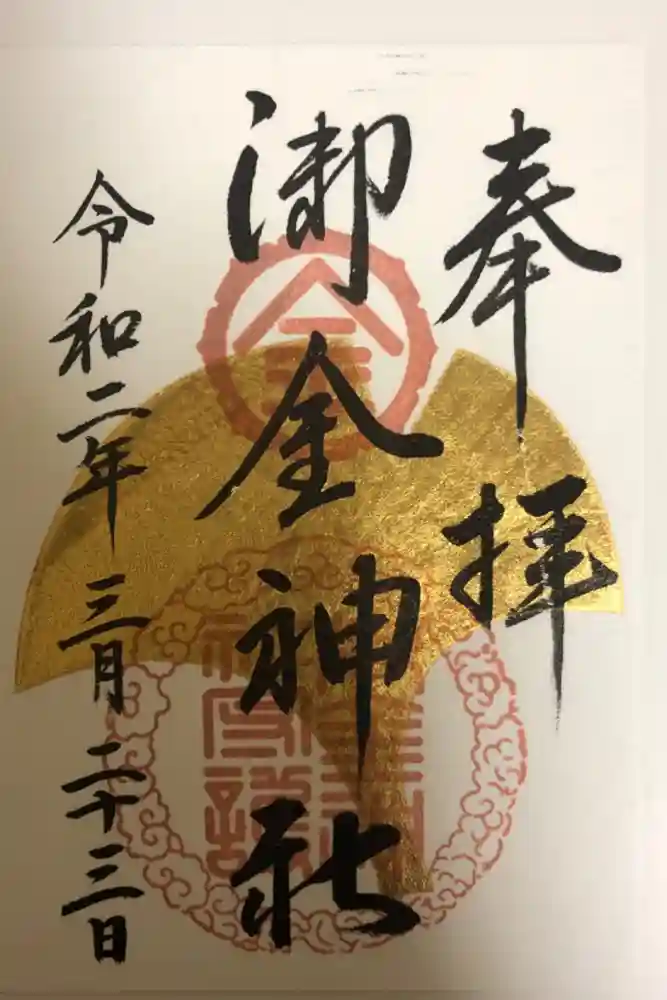 奉拝
御金神社
令和二年三月二十三日
金